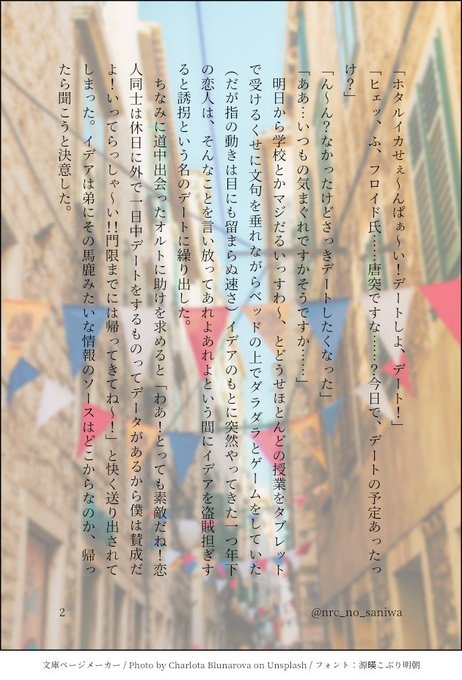 「ホタルイカせぇ〜んぱぁ〜い！デートしよ、デート！」
「ヒェッ、ふ、フロイド氏……唐突ですな……？今日で、デートの予定あったっ
け？」
「ん〜ん？なかったけどさっきデートしたくなった」
「ああ…いつもの気まぐれですかそうですか……」
明日から学校とかマジだるいっすわ〜、とどうせほとんどの授業をタブレット
で受けるくせに文句を垂れながらベッドの上でダラダラとゲームをしていた
（だが指の動きは目にも留まらぬ速さ）イデアのもとに突然やってきた一つ年下
の恋人は、そんなことを言い放ってあれよあれよという間にイデアを盗賊担ぎす
ると誘拐という名のデートに繰り出した。
ちなみに道中出会ったオルトに助けを求めると「わあ！とっても素敵だね！恋
人同士は休日に外で一日中デートをするものってデータがあるから僕は賛成だ
よ！いってらっしゃ〜い!!門限までには帰ってきてね〜！」と快く送り出されて
しまった。イデアは弟にその馬鹿みたいな情報のソースはどこからなのか、帰っ
たら聞こうと決意した。
2
@nrc_no_saniwa
文庫ページメーカー / Photo by Charlota Blunarova on Unsplash / フォント：源暎こぶり明朝